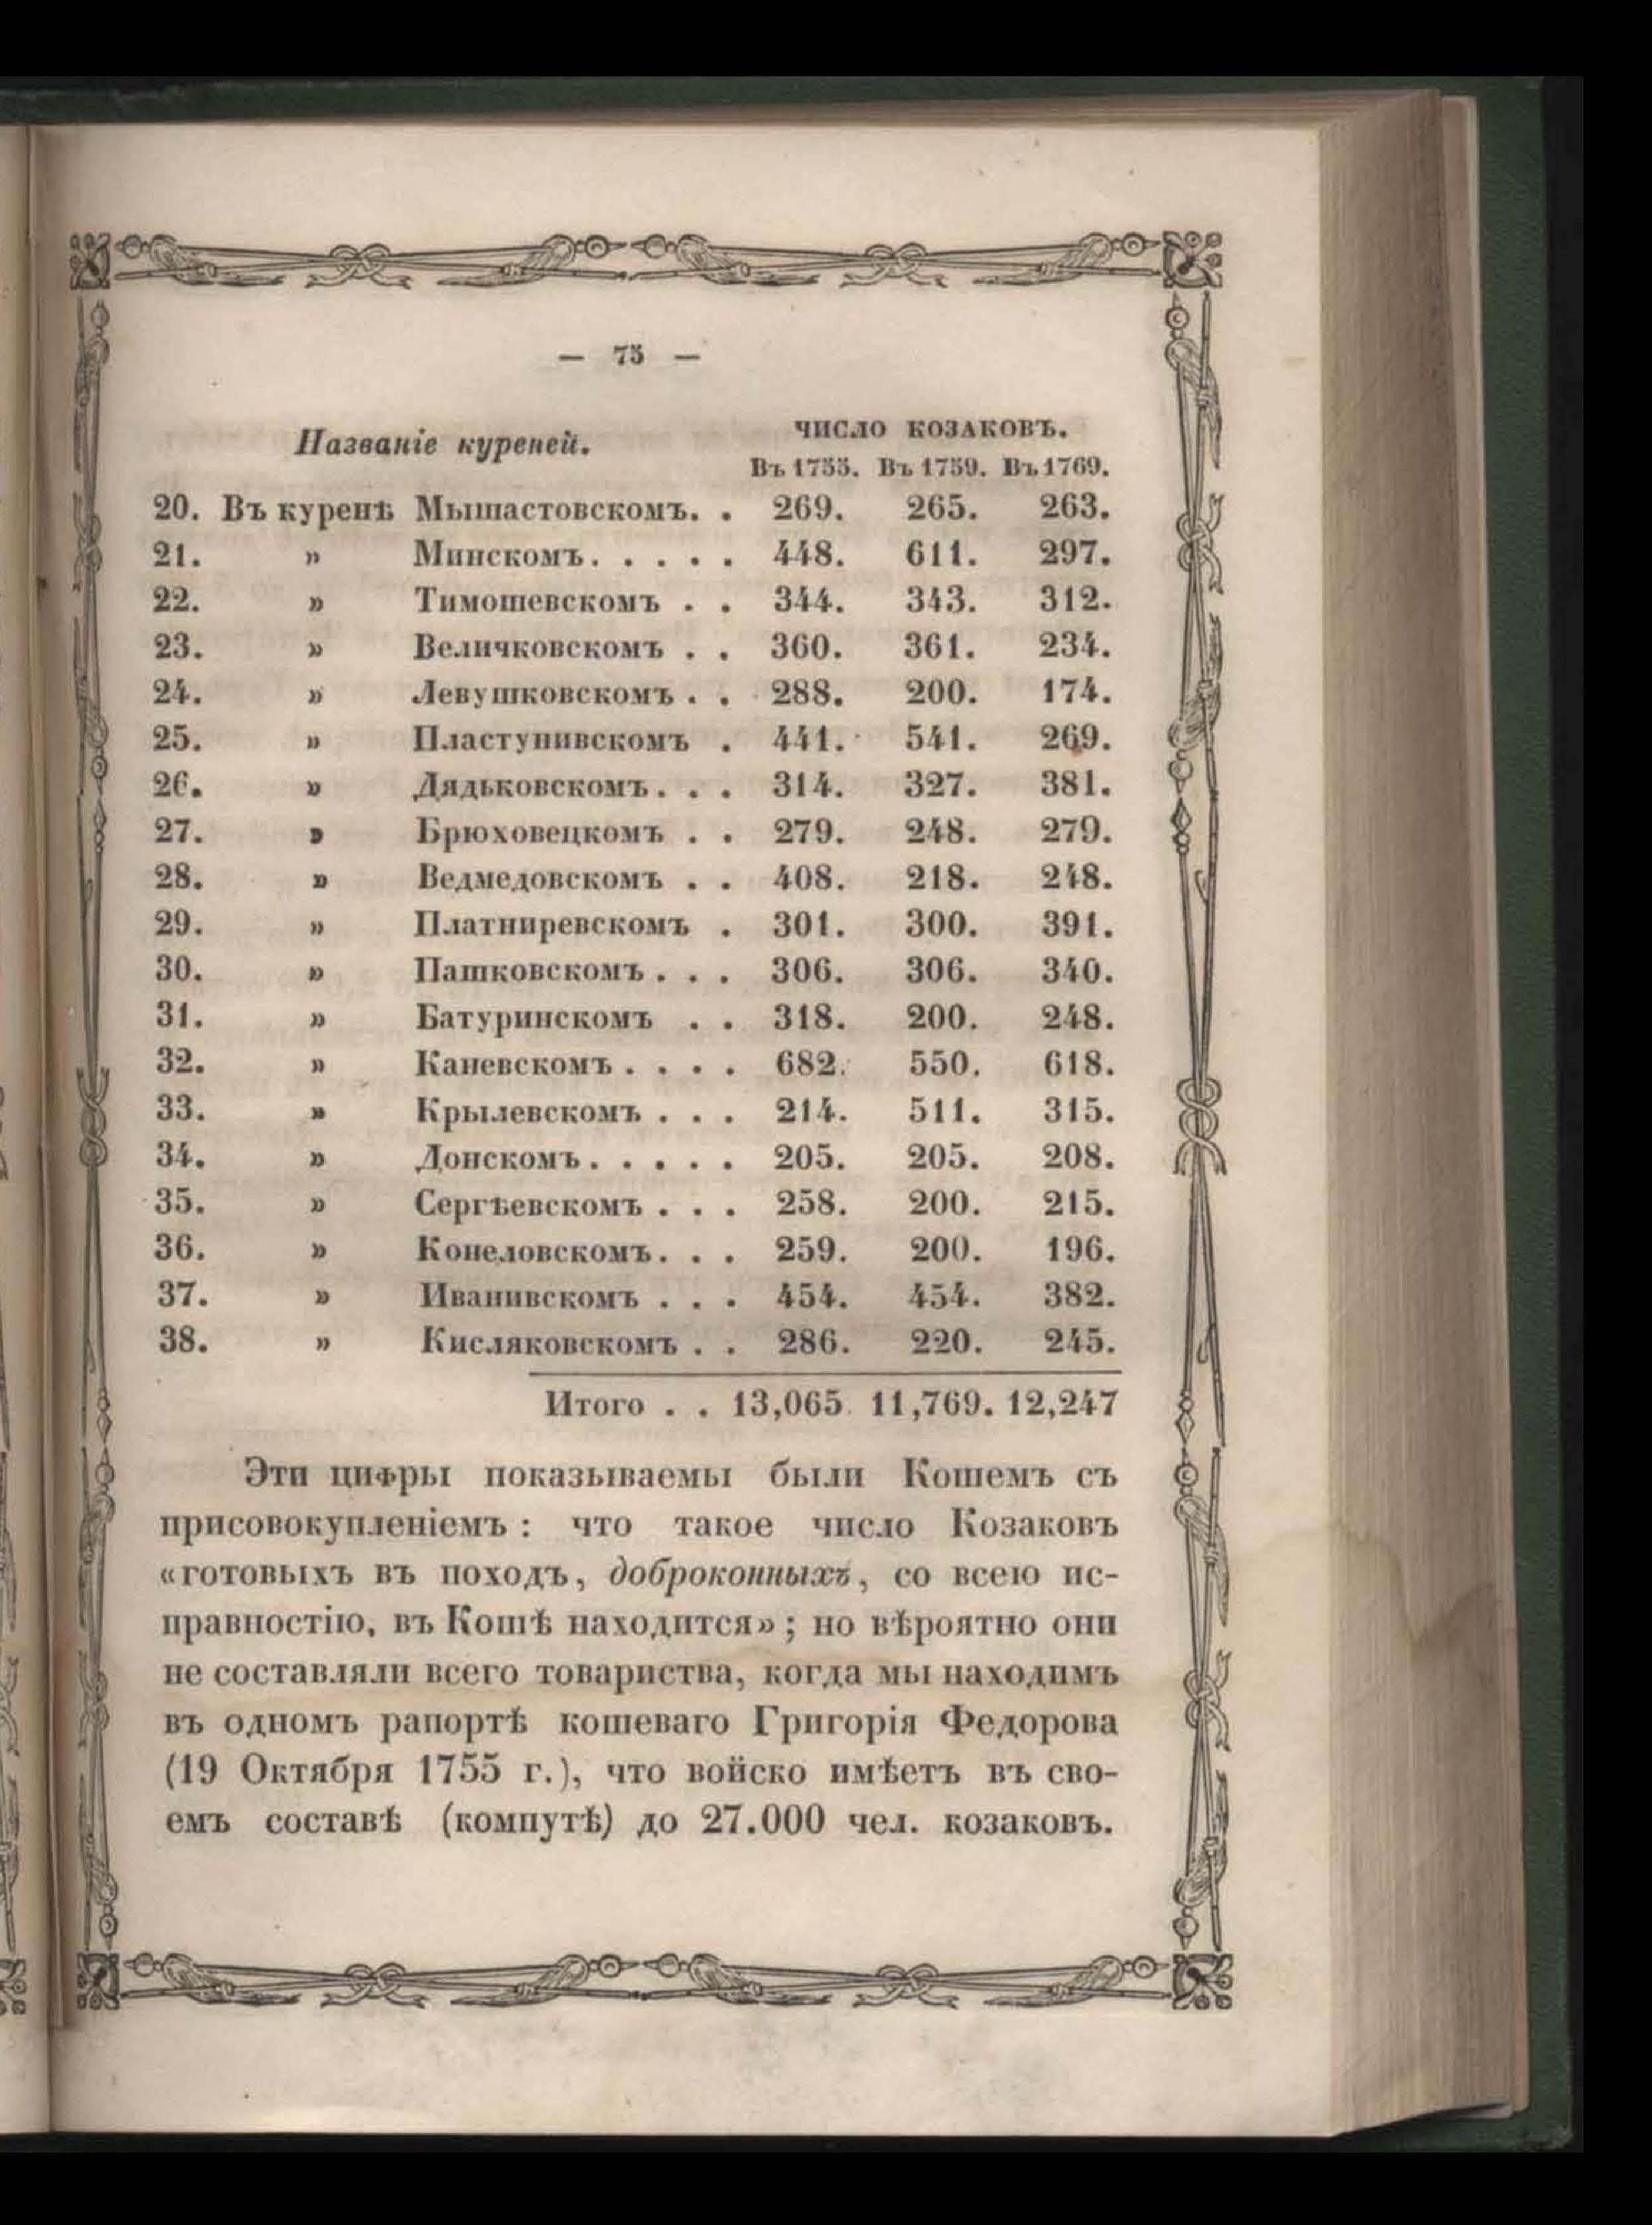 — 75 —
Названіе куреней.
ЧИСЛО КОЗАКОВЪ.
Въ 1755. Въ 1759. Въ 1769.
20. Въ куренѣ Мышастовскомъ. . 269. 265. 263.
21. » Минскомъ. . . . . 448. 611. 297.
22. » Тимошевскомъ . . 344. 343. 312.
23. » Величковскомъ . . 360. 361. 234.
24. » Левушковскомъ . . 288. 200. 174.
25. » Пластунивскомъ . 441. 541. 269.
26. » Дядьковскомъ. . . 314. 327. 381.
27. » Брюховецкомъ . . 279. 248. 279.
28. » Ведмедовскомъ . . 408. 218. 248.
29. » Платниревскомъ . 301. 300. 391.
30. » Пашковскомъ . . . 306. 306. 340.
31. » Батуринскомъ . . 318. 200. 248.
32. » Каневскомъ . . . . 682. 550. 618.
33. » Крылевскомъ . . . 214. 511. 315.
34. » Донскомъ. . . . . 205. 205. 208.
35. » Сергѣевскомъ . . . 258. 200. 215.
36. » Конеловскомъ. . . 259. 200. 196.
37. » Иванивскомъ . . . 454. 454. 382.
38. » Кисляковскомъ . . 286. 220. 245.
Итого . . 13,065. 11,769. 12,247
Эти цифры показываемы были Кошемъ съ
присовокупленіемъ : что такое число Козаковъ
«готовыхъ въ походъ, доброконныхъ, со всею ис-
правностію, въ Кошѣ находится» ; но вѣроятно они
не составляли всего товариства, когда мы находимъ
въ одномъ рапортѣ кошеваго Григорія Федорова
(19 Октября 1755 г.), что войско имѣетъ въ сво-
емъ составѣ (компутѣ) до 27.000 чел. козаковъ.